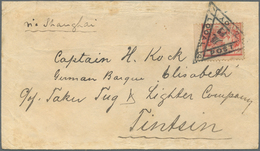 via Shanghai
Captain H. Kock
German Barque "Elisabeth"
c/o Taker Tug & Lighter Company
Tintsin
POST